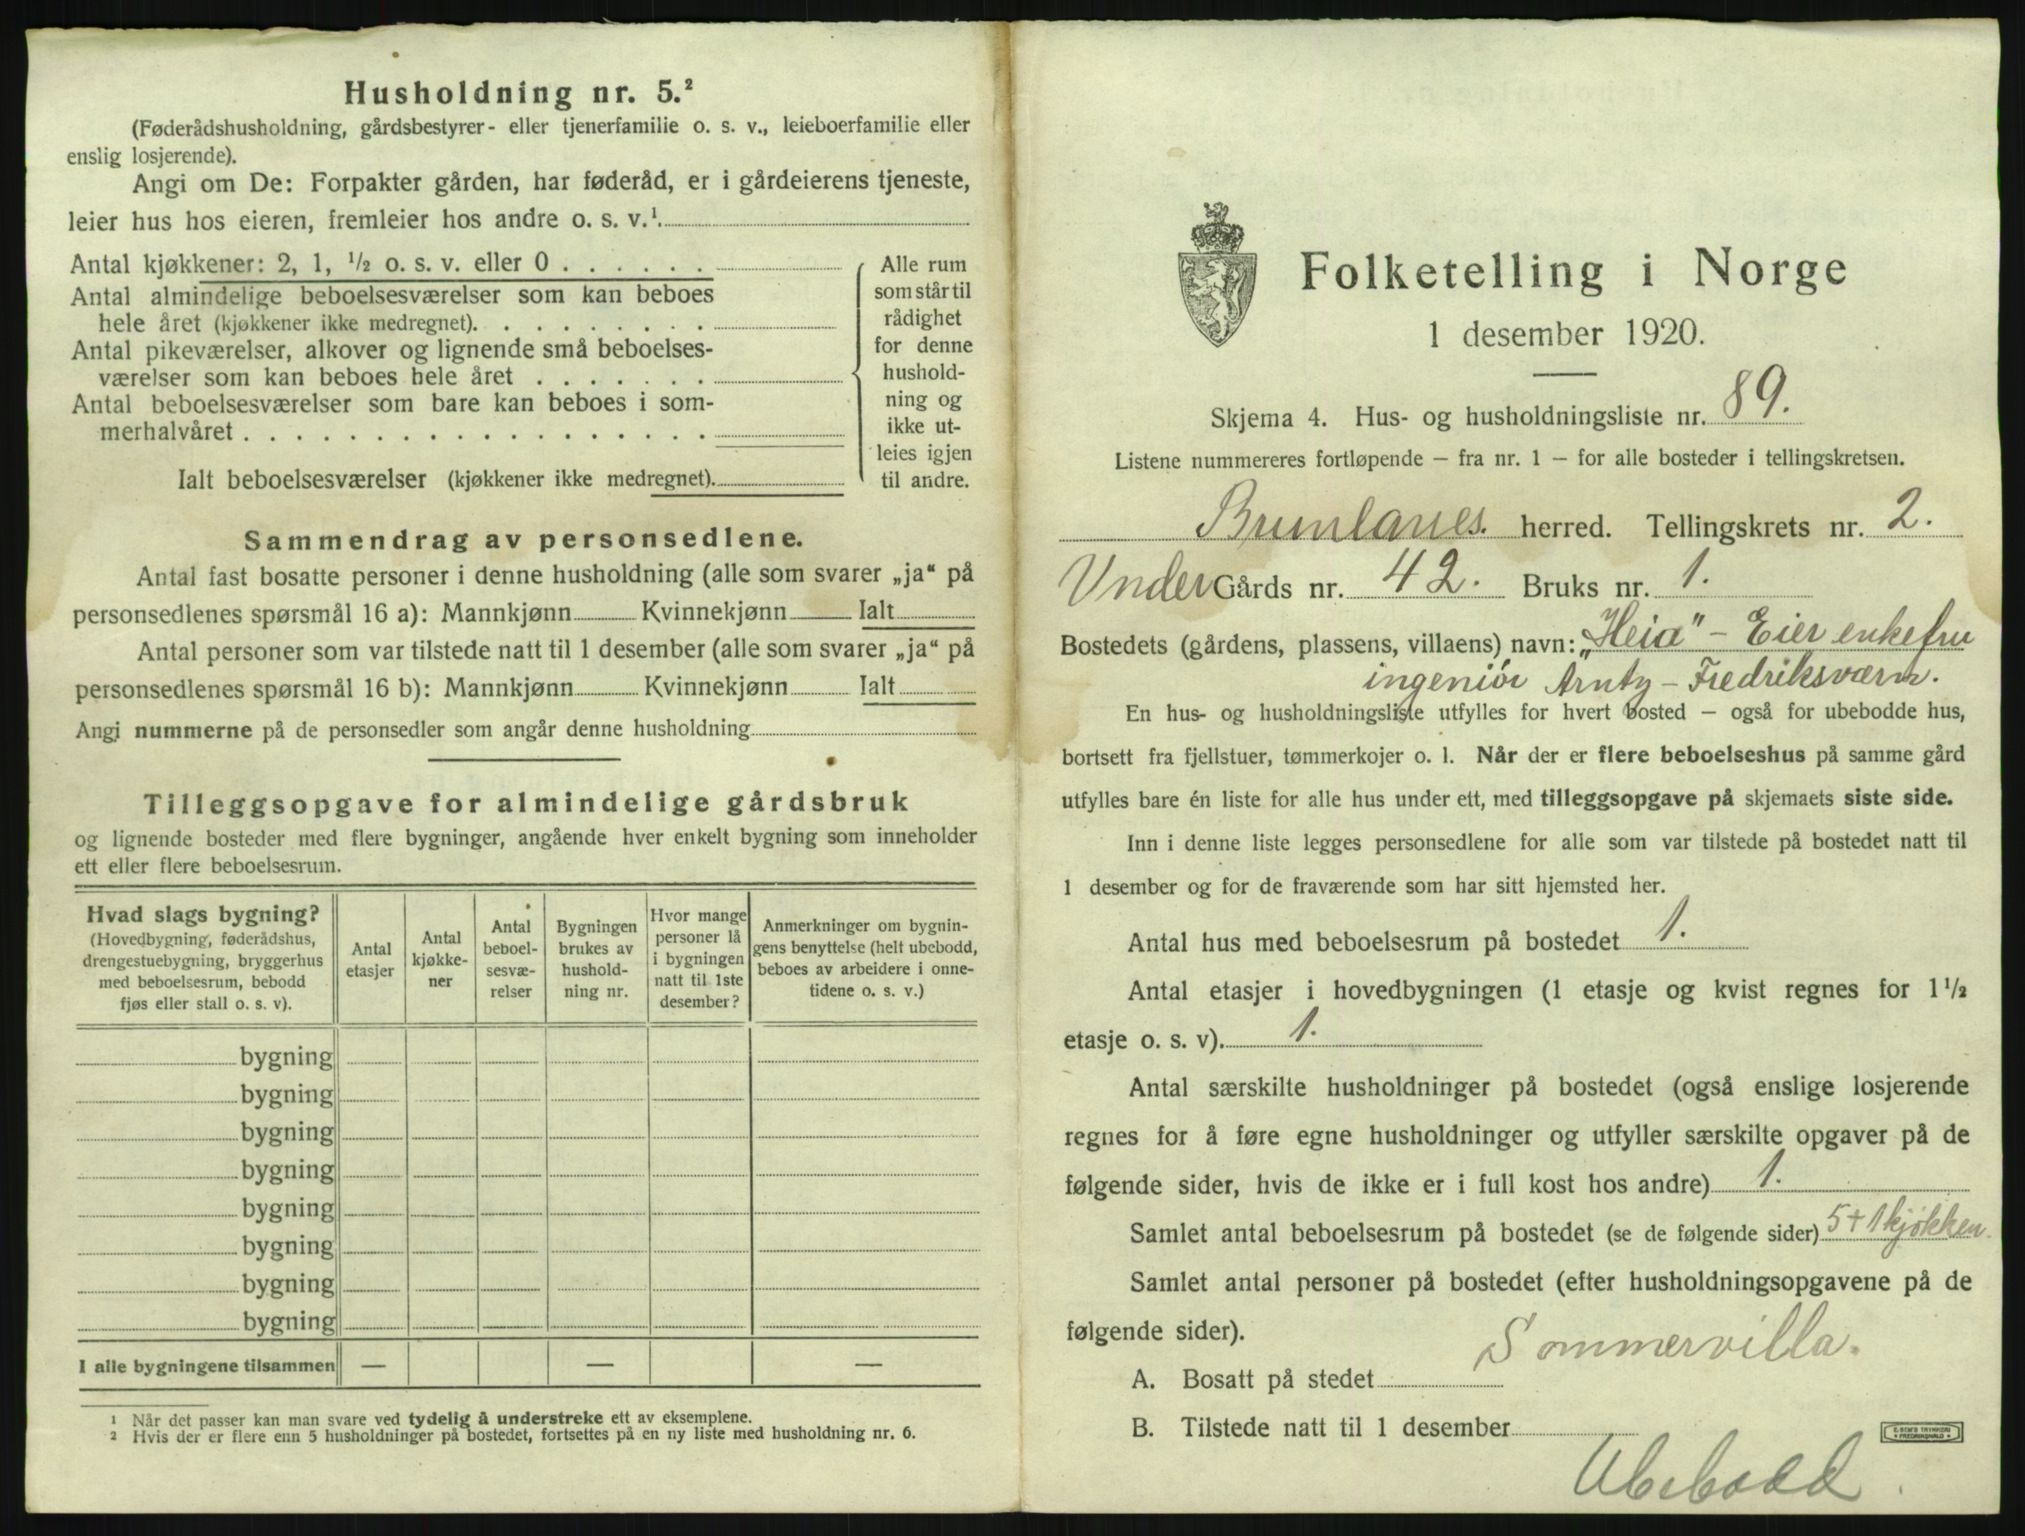 Husholdning nr. 5.²
(Føderådshusholdning, gårdsbestyrer- eller tjenerfamilie o. s. v., leieboerfamilie eller
enslig losjerende).
Angi om De: Forpakter gården, har føderåd, er i gårdeierens tjeneste,
leier hus hos eieren, fremleier hos andre o. s. v.¹.
Antal kjøkkener: 2, 1, ½ o. s. v. eller 0 . . . . . .
Antal almindelige beboelsesværelser som kan beboes
hele året (kjøkkener ikke medregnet). . . . . . . . .
Antal pikeværelser, alkover og lignende små beboelses-
værelser som kan beboes hele året . . . . . . .
Antal beboelsesværelser som bare kan beboes i som-
merhalvåret . . . . . . . . . . . . . . . . . .
Ialt beboelsesværelser (kjøkkener ikke medregnet).
Alle rum
som står til
rådighet
for denne
hushold-
ning og
ikke ut-
leies igjen
til andre.
Sammendrag av personsedlene.
Antal fast bosatte personer i denne husholdning (alle som svarer „ja“ på
personsedlenes spørsmål 16 a): Mannkjønn Kvinnekjønn Ialt
Antal personer som var tilstede natt til 1 desember (alle som svarer „ja“ på
personsedlenes spørsmål 16 b): Mannkjønn Kvinnekjønn Ialt
Angi nummerne på de personsedler som angår denne husholdning
Tilleggsopgave for almindelige gårdsbruk
og lignende bosteder med flere bygninger, angående hver enkelt bygning som inneholder
ett eller flere beboelsesrum.
Hvad slags bygning?
(Hovedbygning, føderådshus,
drengestuebygning, bryggerhus
med beboelsesrum, bebodd
fjøs eller stall o. s. v).
Antal
etasjer
Antal
kjøkke-
ner
Antal
beboel-
sesvæ-
relser
Bygningen
brukes av
hushold-
ning nr.
Hvor mange
personer lå
i bygningen
natt til 1ste
desember?
Anmerkninger om bygnin-
gens benyttelse (helt ubebodd,
beboes av arbeidere i onne-
tidene o. s. v.)
bygning
bygning
bygning
bygning
bygning
bygning
bygning
bygning
I alle bygningene tilsammen — — —
¹ Når det passer kan man svare ved tydelig å understreke ett av eksemplene.
² Hvis der er flere enn 5 husholdninger på bostedet, fortsettes på en ny liste med husholdning nr. 6.
Folketelling i Norge
1 desember 1920.
Skjema 4. Hus- og husholdningsliste nr. 89.
Listene nummereres fortløpende – fra nr. 1 – for alle bosteder i tellingskretsen.
Brunlanes. herred. Tellingskrets nr. 2.
Under Gårds nr. 42. Bruks nr. 1.
Bostedets (gårdens, plassens, villaens) navn: „Heia" – Eier enkefru
ingeniör Arntz – Fredriksværn.
En hus- og husholdningsliste utfylles for hvert bosted – også for ubebodde hus,
bortsett fra fjellstuer, tømmerkojer o. l. Når der er flere beboelseshus på samme gård
utfylles bare én liste for alle hus under ett, med tilleggsopgave på skjemaets siste side.
Inn i denne liste legges personsedlene for alle som var tilstede på bostedet natt til
1 desember og for de fraværende som har sitt hjemsted her.
Antal hus med beboelsesrum på bostedet 1.
Antal etasjer i hovedbygningen (1 etasje og kvist regnes for 1½
etasje o. s. v). 1.
Antal særskilte husholdninger på bostedet (også enslige losjerende
regnes for å føre egne husholdninger og utfyller særskilte opgaver på de
følgende sider, hvis de ikke er i full kost hos andre) 1.
Samlet antal beboelsesrum på bostedet (se de følgende sider) 5 + 1 kjøkken.
Samlet antal personer på bostedet (efter husholdningsopgavene på de
følgende sider).
Sommervilla.
A. Bosatt på stedet
B. Tilstede natt til 1 desember
Ubebodd.